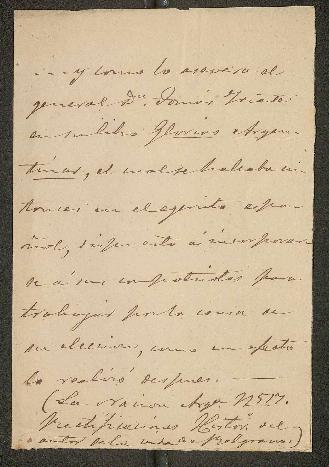 ... y como lo asevera el
general Dn. Tomás Iriarte
en su libro Glorias Argen-
tinas, el cual se hallaba en-
tonces en el egercito espa-
ñol, á incorporar-
se á sus compatriotas para
trabajar por la causa de
su eleccion, como en efecto
lo realizó despues. —
(La Nacion Arga. N 517.
Rectificaciones Histór. del
autor de la vida de Belgrano.)